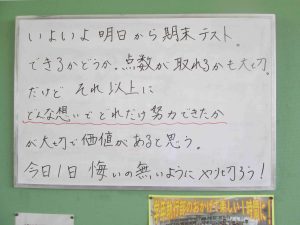 いよいよ明日から期末テスト。
できるかどうか。点数が取れるかも大切。
だけど それ以上に
どんな想いでどれだけ努力できたか
が大切で価値があると思う。
今日1日 悔いの無いようにやり切ろう!